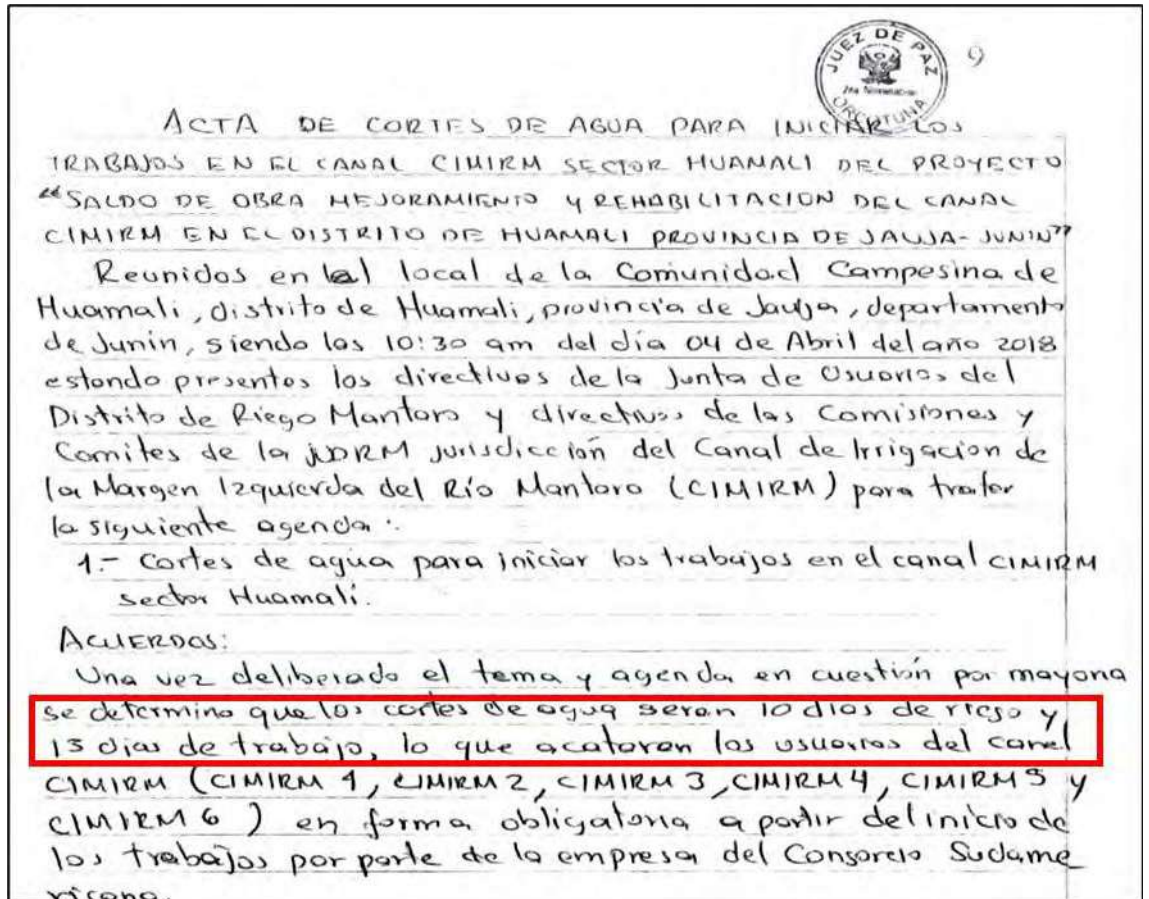 JUEZ DE PAZ
ORCOTUNA
9
ACTA DE CORTES DE AGUA PARA INICIAR LOS
TRABAJOS EN EL CANAL CIMIRM SECTOR HUAMALI DEL PROYECTO
"SALDO DE OBRA MEJORAMIENTO Y REHABILITACION DEL CANAL
CIMIRM EN EL DISTRITO DE HUAMALI PROVINCIA DE JAUJA-JUNIN"
Reunidos en el local de la Comunidad Campesina de
Huamali, distrito de Huamali, provincia de Jauja, departamento
de Junin, siendo las 10:30 am del día 04 de Abril del año 2018
estando presentes los directivos de la Junta de Usuarios del
Distrito de Riego Mantaro y directivos de las Comisiones y
Comites de la JUDRM jurisdicción del Canal de Irrigacion de
la Margen Izquierda del Río Mantaro (CIMIRM) para tratar
la siguiente agenda:
1.- Cortes de agua para iniciar los trabajos en el canal CIMIRM
sector Huamalí.
ACUERDOS:
Una vez deliberado el tema y agenda en cuestión por mayoria
se determino que los cortes de agua seran 10 dias de riego y
15 dias de trabajo, lo que acataran los usuarios del canal
CIMIRM (CIMIRM 1, CIMIRM 2, CIMIRM 3, CIMIRM 4, CIMIRM 5 y
CIMIRM 6) en forma obligatoria a partir del inicio de
los trabajos por parte de la empresa del Consorcio Sudame
ricano.